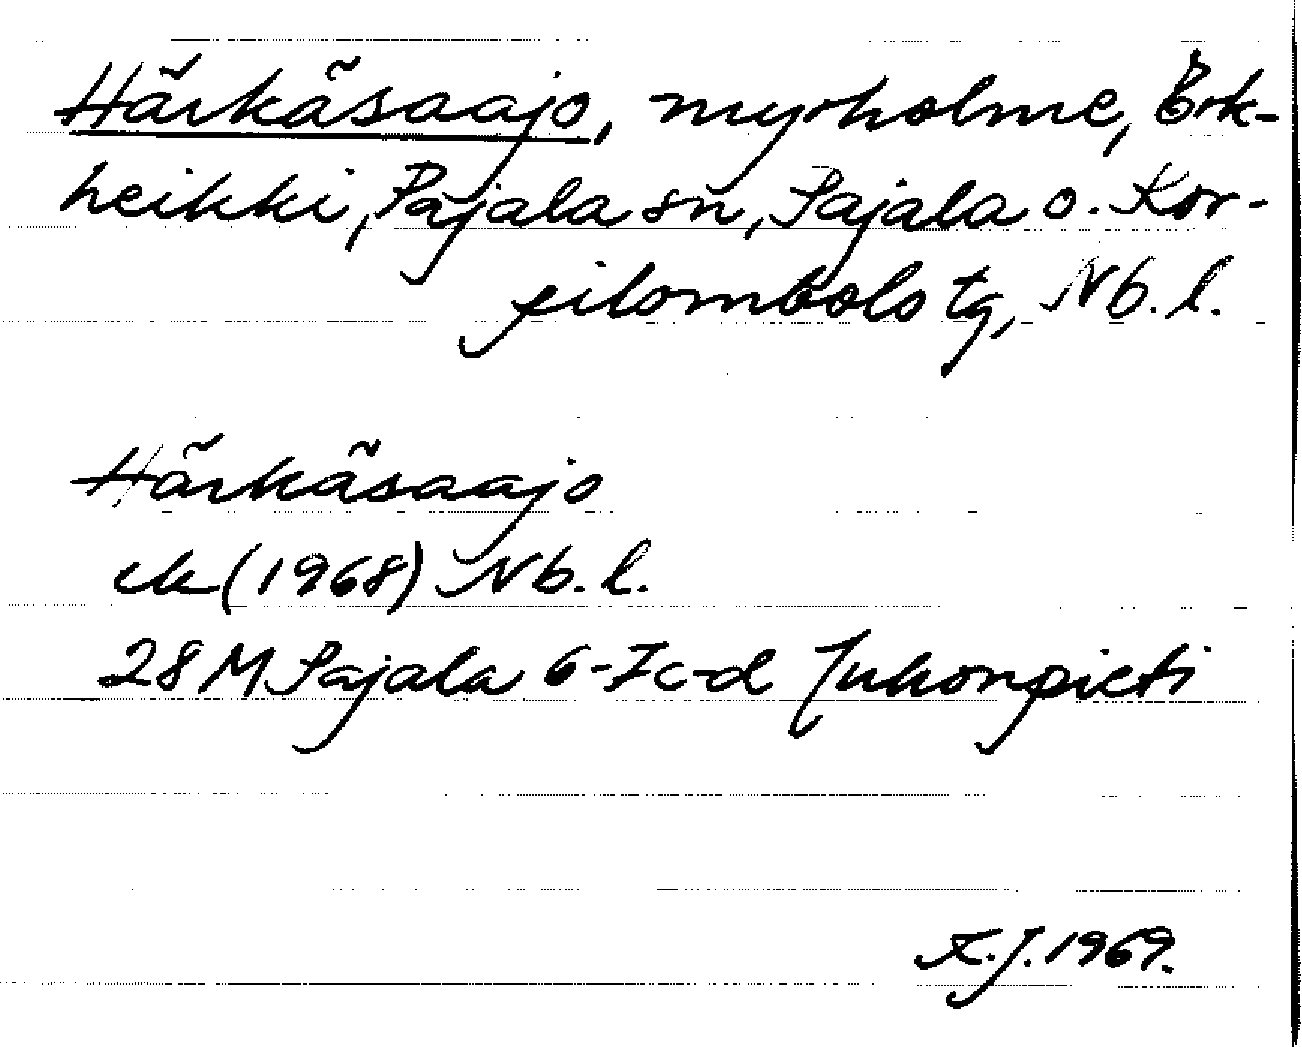 Härkäsaajo, myrholme, Erk-
heikki, Pajala sn, Pajala o. Kor-
pilombolo tg, Nb. l.
Härkäsaajo
ek (1968) Nb. l.
28 M Pajala 6-7c-d Juhonpieti
K.J. 1969.